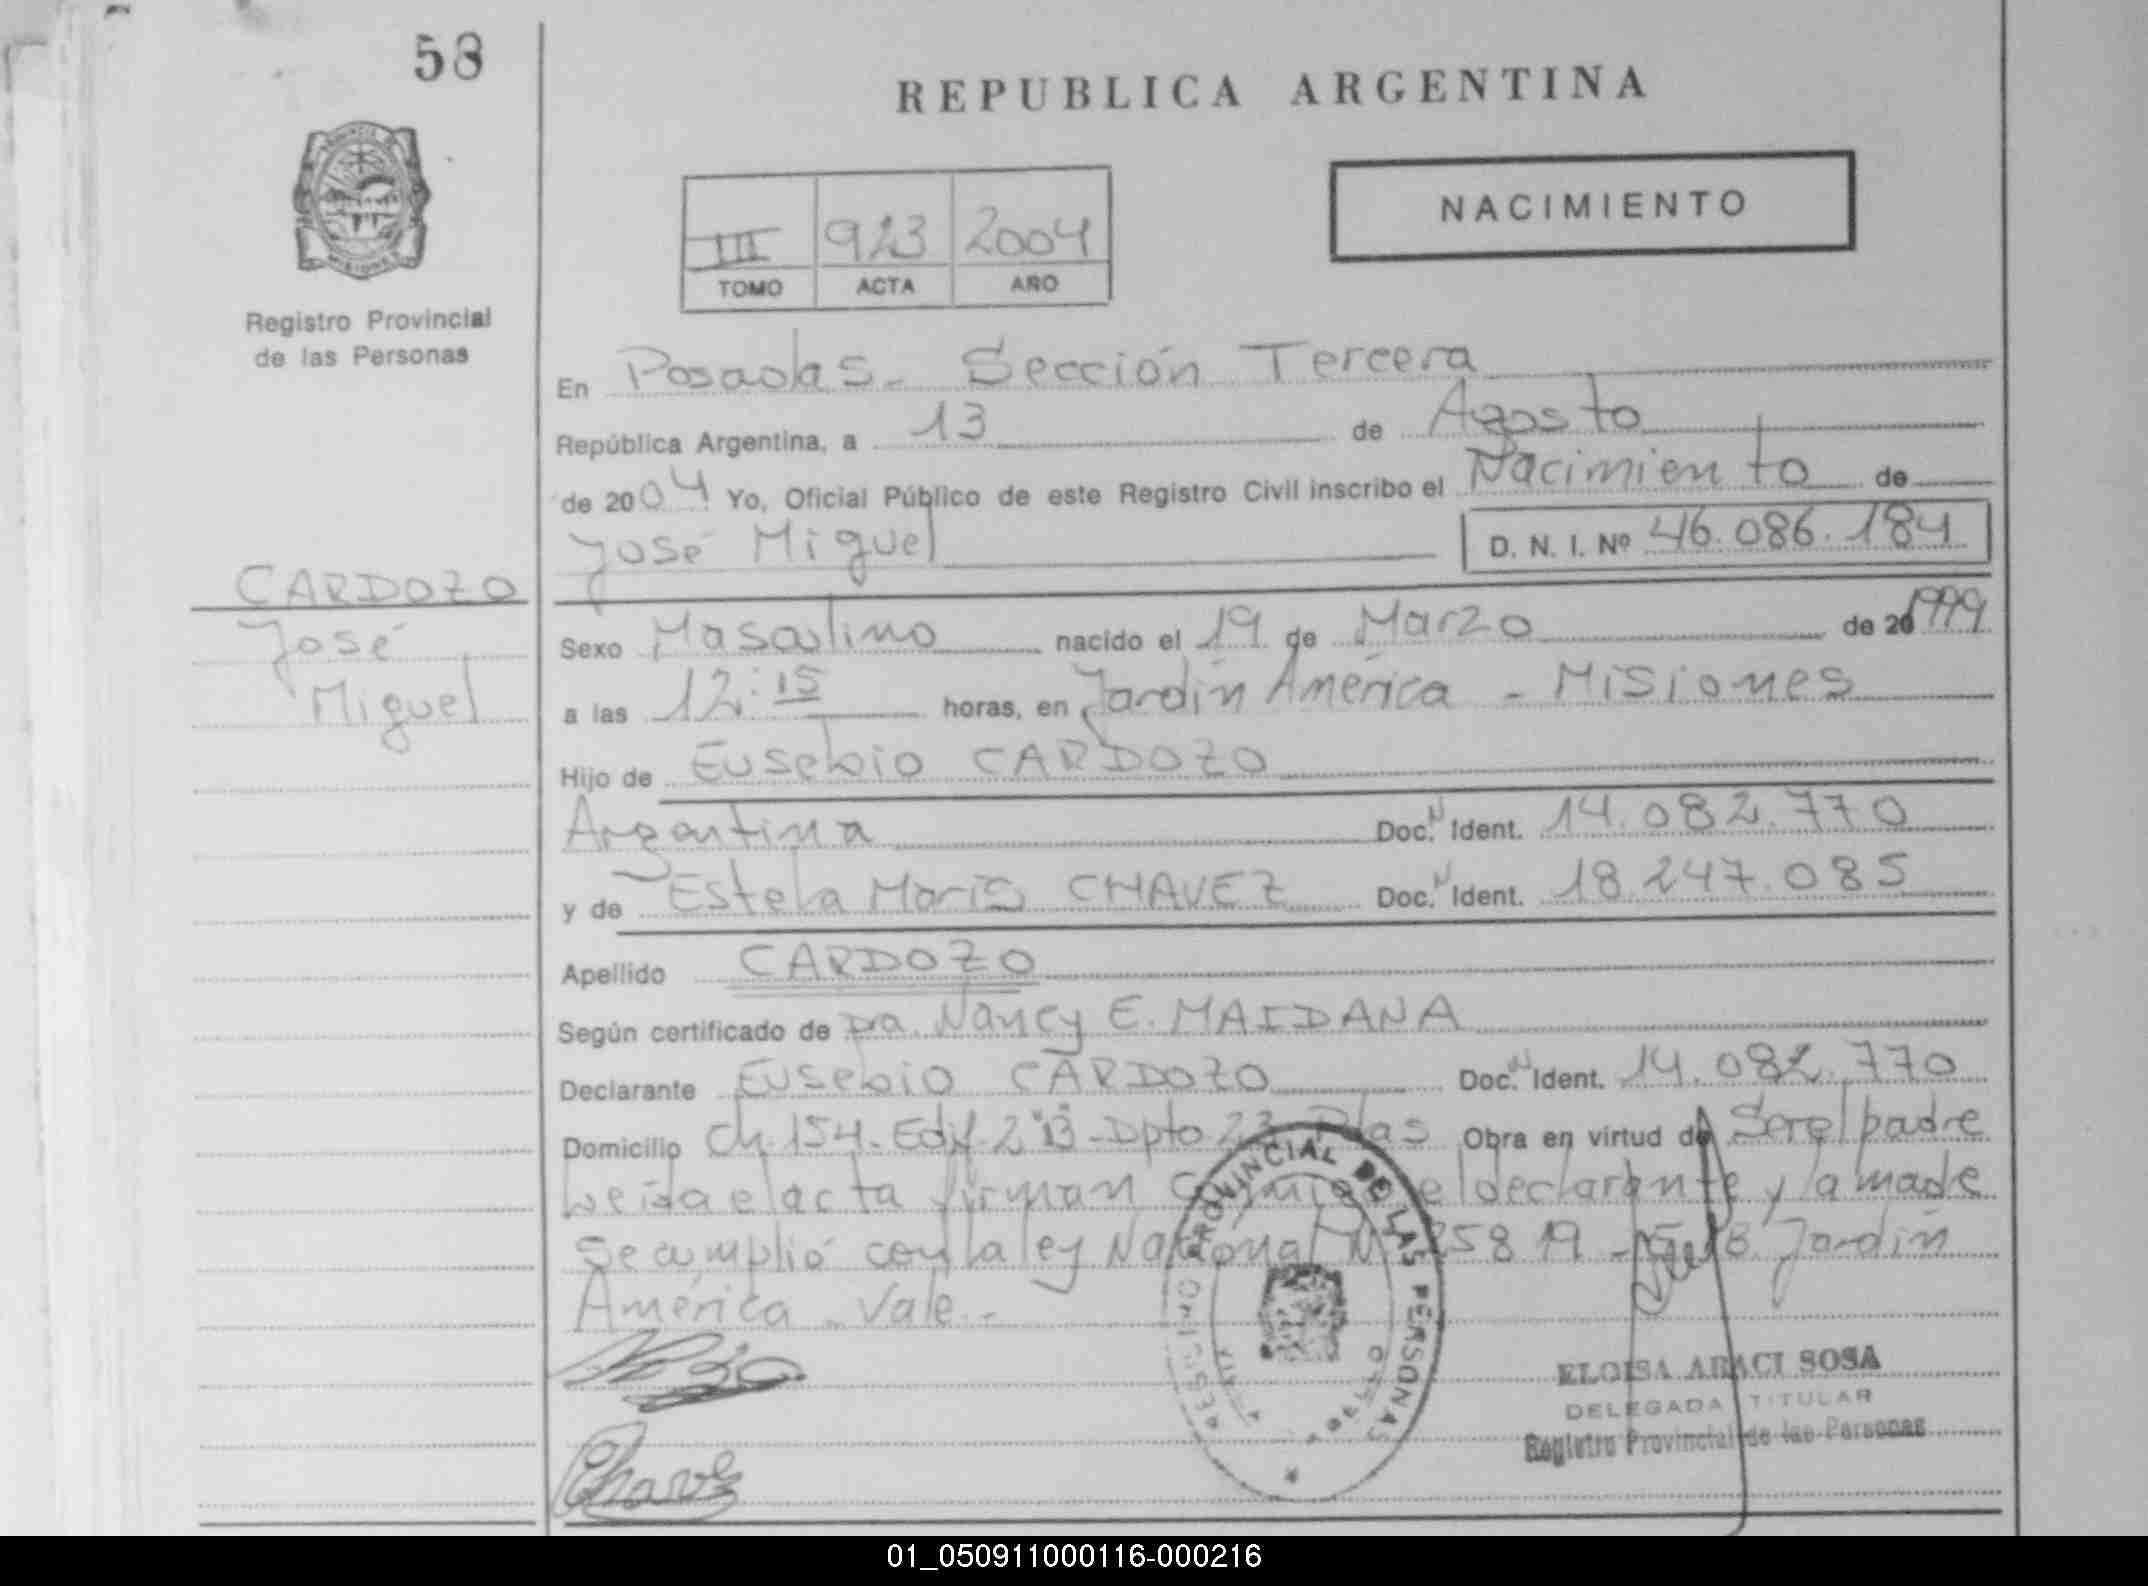 58
REPUBLICA ARGENTINA
NACIMIENTO
III 923 2004
TOMO ACTA AÑO
MISIONES
Registro Provincial
de las Personas
En Posadas - Sección Tercera
República Argentina, a 13 de Agosto
de 2004 Yo, Oficial Público de este Registro Civil inscribo el Nacimiento de
José Miguel D. N. I. Nº 46.086.184
CARDOZO
José
Miguel
Sexo Masculino nacido el 19 de Marzo de 20 1999
a las 12:15 horas, en Jardín América - Misiones
Hijo de Eusebio CARDOZO
Argentina Doc. N Ident. 14.082.770
y de Estela Maris CHAVEZ Doc. N Ident. 18.247.085
Apellido CARDOZO
Según certificado de Dra. Nancy E. MAIDANA
Declarante Eusebio CARDOZO Doc. N Ident. 14.082.770
Domicilio Ch. 154 - Edif. 2 "B" - Dpto 23 Pdas Obra en virtud de Ser el padre
Leída el acta firman conmigo el declarante y la madre
se cumplió con la ley Nacional Nº 25819 - Jardín
América - Vale -
PROVINCIAL DE LAS PERSONAS
ELOISA ARACI SOSA
DELEGADA TITULAR
Registro Provincial de las Personas
Chavez
01_050911000116-000216